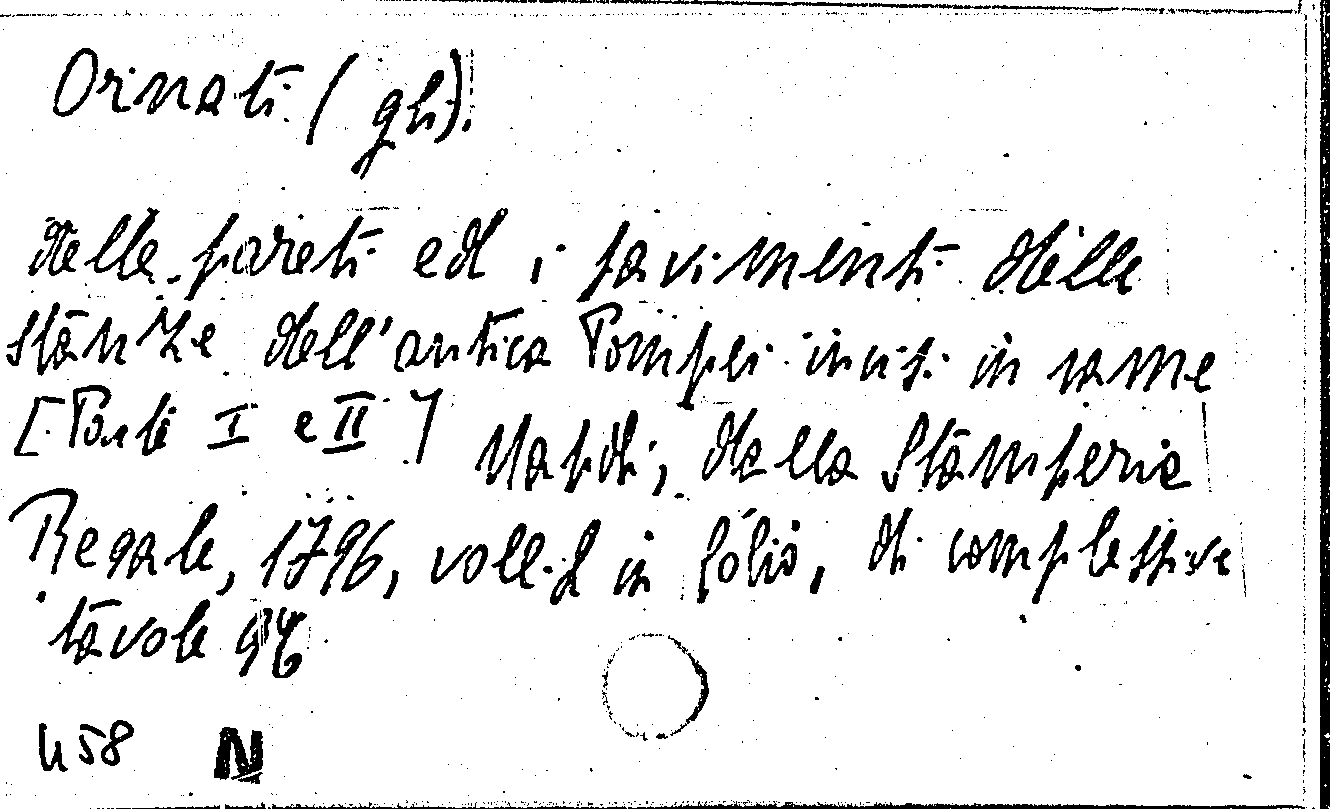 Ornati (gli).
delle pareti ed i pavimenti delle
stanze dell'antica Pompei incisi in rame
[Parte I e II] Napoli, dalla Stamperia
Regale, 1796, voll. 2 in folio, di complessive
tavole 96
458 N